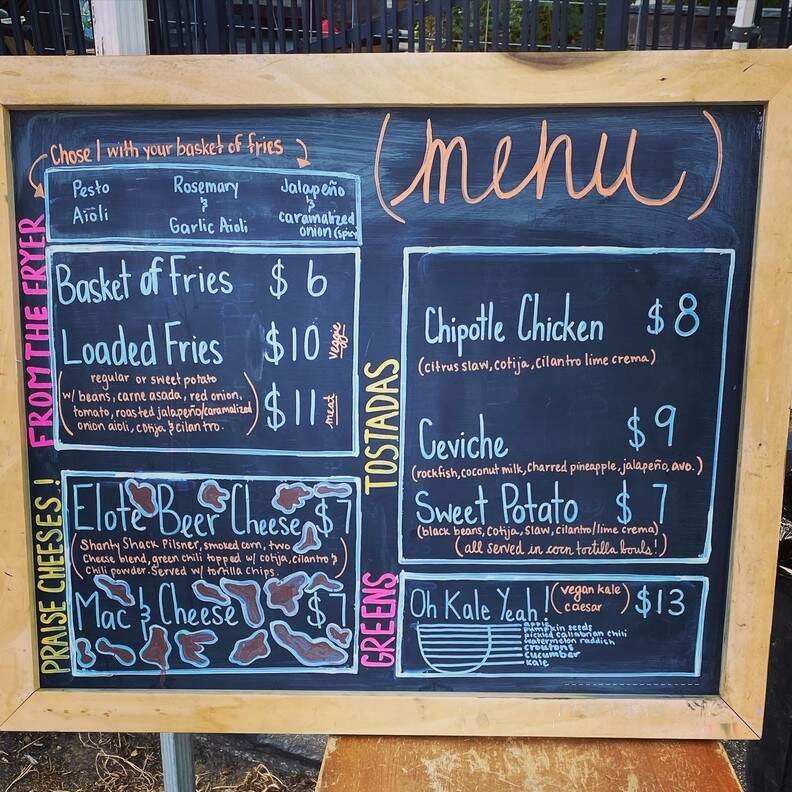 (menu)
Chose 1 with your basket of fries
Pesto Aioli
Rosemary & Garlic Aioli
Jalapeño & caramalized onion (spicy
FROM THE FRYER
Basket of Fries $6
Loaded Fries $10 veggie
$11 meat
(regular or sweet potato
w/ beans, carne asada, red onion,
tomato, roasted jalapeño/caramalized
onion aioli, cotija & cilantro.)
PRAISE CHEESES!
Elote Beer Cheese $7
(Shanty Shack Pilsner, smoked corn, two
cheese blend, green chili topped w/ cotija, cilantro &
chili powder. Served w/ tortilla chips.
Mac & Cheese $7
TOSTADAS
Chipotle Chicken $8
(citrus slaw, cotija, cilantro lime crema)
Ceviche $9
(rockfish, coconut milk, charred pineapple, jalapeño, avo.)
Sweet Potato $7
(black beans, cotija, slaw, cilantro/lime crema)
(all served in corn tortilla bowls!)
GREENS
Oh Kale Yeah! (vegan kale caesar) $13
apple
pumpkin seeds
pickled callabrian chili
watermelon raddish
croutons
cucumber
kale